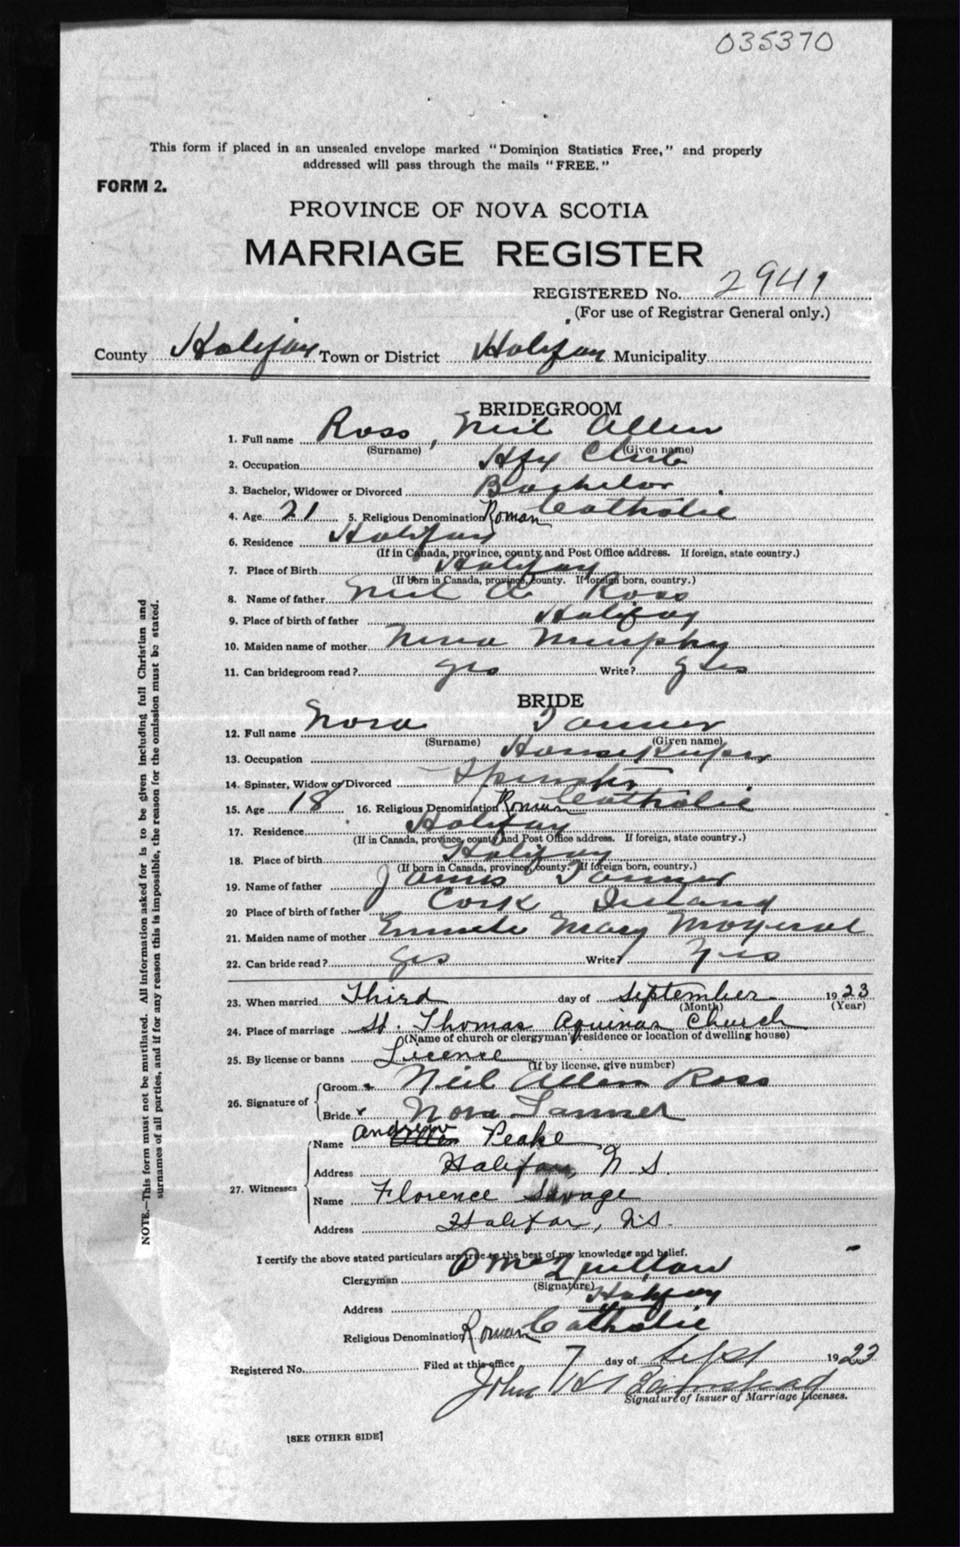 035370
This form if placed in an unsealed envelope marked "Dominion Statistics Free," and properly
addressed will pass through the mails "FREE."
FORM 2.
PROVINCE OF NOVA SCOTIA
MARRIAGE REGISTER
REGISTERED No. 2941
(For use of Registrar General only.)
County Halifax Town or District Halifax Municipality
BRIDEGROOM
1. Full name Ross, Neil Allen
(Surname) (Given name)
2. Occupation Hfx Club
3. Bachelor, Widower or Divorced Bachelor
4. Age 21 5. Religious Denomination Roman Catholic
6. Residence Halifax
(If in Canada, province, county and Post Office address. If foreign, state country.)
7. Place of Birth Halifax
(If born in Canada, province, county. If foreign born, country.)
8. Name of father Neil A Ross
9. Place of birth of father Halifax
10. Maiden name of mother Nina Murphy
11. Can bridegroom read? yes Write? yes
BRIDE
12. Full name Nora Tanner
(Surname) (Given name)
13. Occupation Housekeeper
14. Spinster, Widow or Divorced Spinster
15. Age 18 16. Religious Denomination Roman Catholic
17. Residence Halifax
(If in Canada, province, county and Post Office address. If foreign, state country.)
18. Place of birth Halifax
(If born in Canada, province, county. If foreign born, country.)
19. Name of father James Tanner
20 Place of birth of father Cork Ireland
21. Maiden name of mother Mary
22. Can bride read? yes Write? yes
23. When married Third day of September 1923
(Month) (Year)
24. Place of marriage St. Thomas Aquinas Church
(Name of church or clergyman's residence or location of dwelling house)
25. By license or banns License
(If by license, give number)
26. Signature of Groom x Neil Allen Ross
Bride x Nora Tanner
27. Witnesses Name Andrew Peake
Address Halifax, N.S.
Name Florence Savage
Address Halifax, N.S.
I certify the above stated particulars are true to the best of my knowledge and belief.
Clergyman McQuillan
(Signature)
Address Halifax
Religious Denomination Roman Catholic
Registered No. Filed at this office 7 day of Sept 1923
John
Signature of Issuer of Marriage Licenses.
[SEE OTHER SIDE]
NOTE.—This form must not be mutilated. All information asked for is to be given including full Christian and
surnames of all parties, and if for any reason this is impossible, the reason for the omission must be stated.